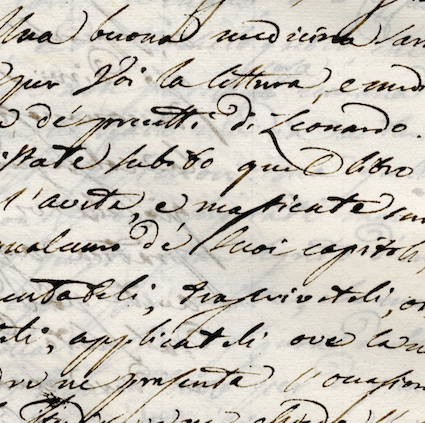 Una buona medicina sar
per Voi la lettura, e med
de' precetti di Leonardo.
istate subito quel libro
l'avete, e masticate
qualcuno de' suoi capitoli,
trascriveteli,
applicateli ove la
ne presenta l'occasion